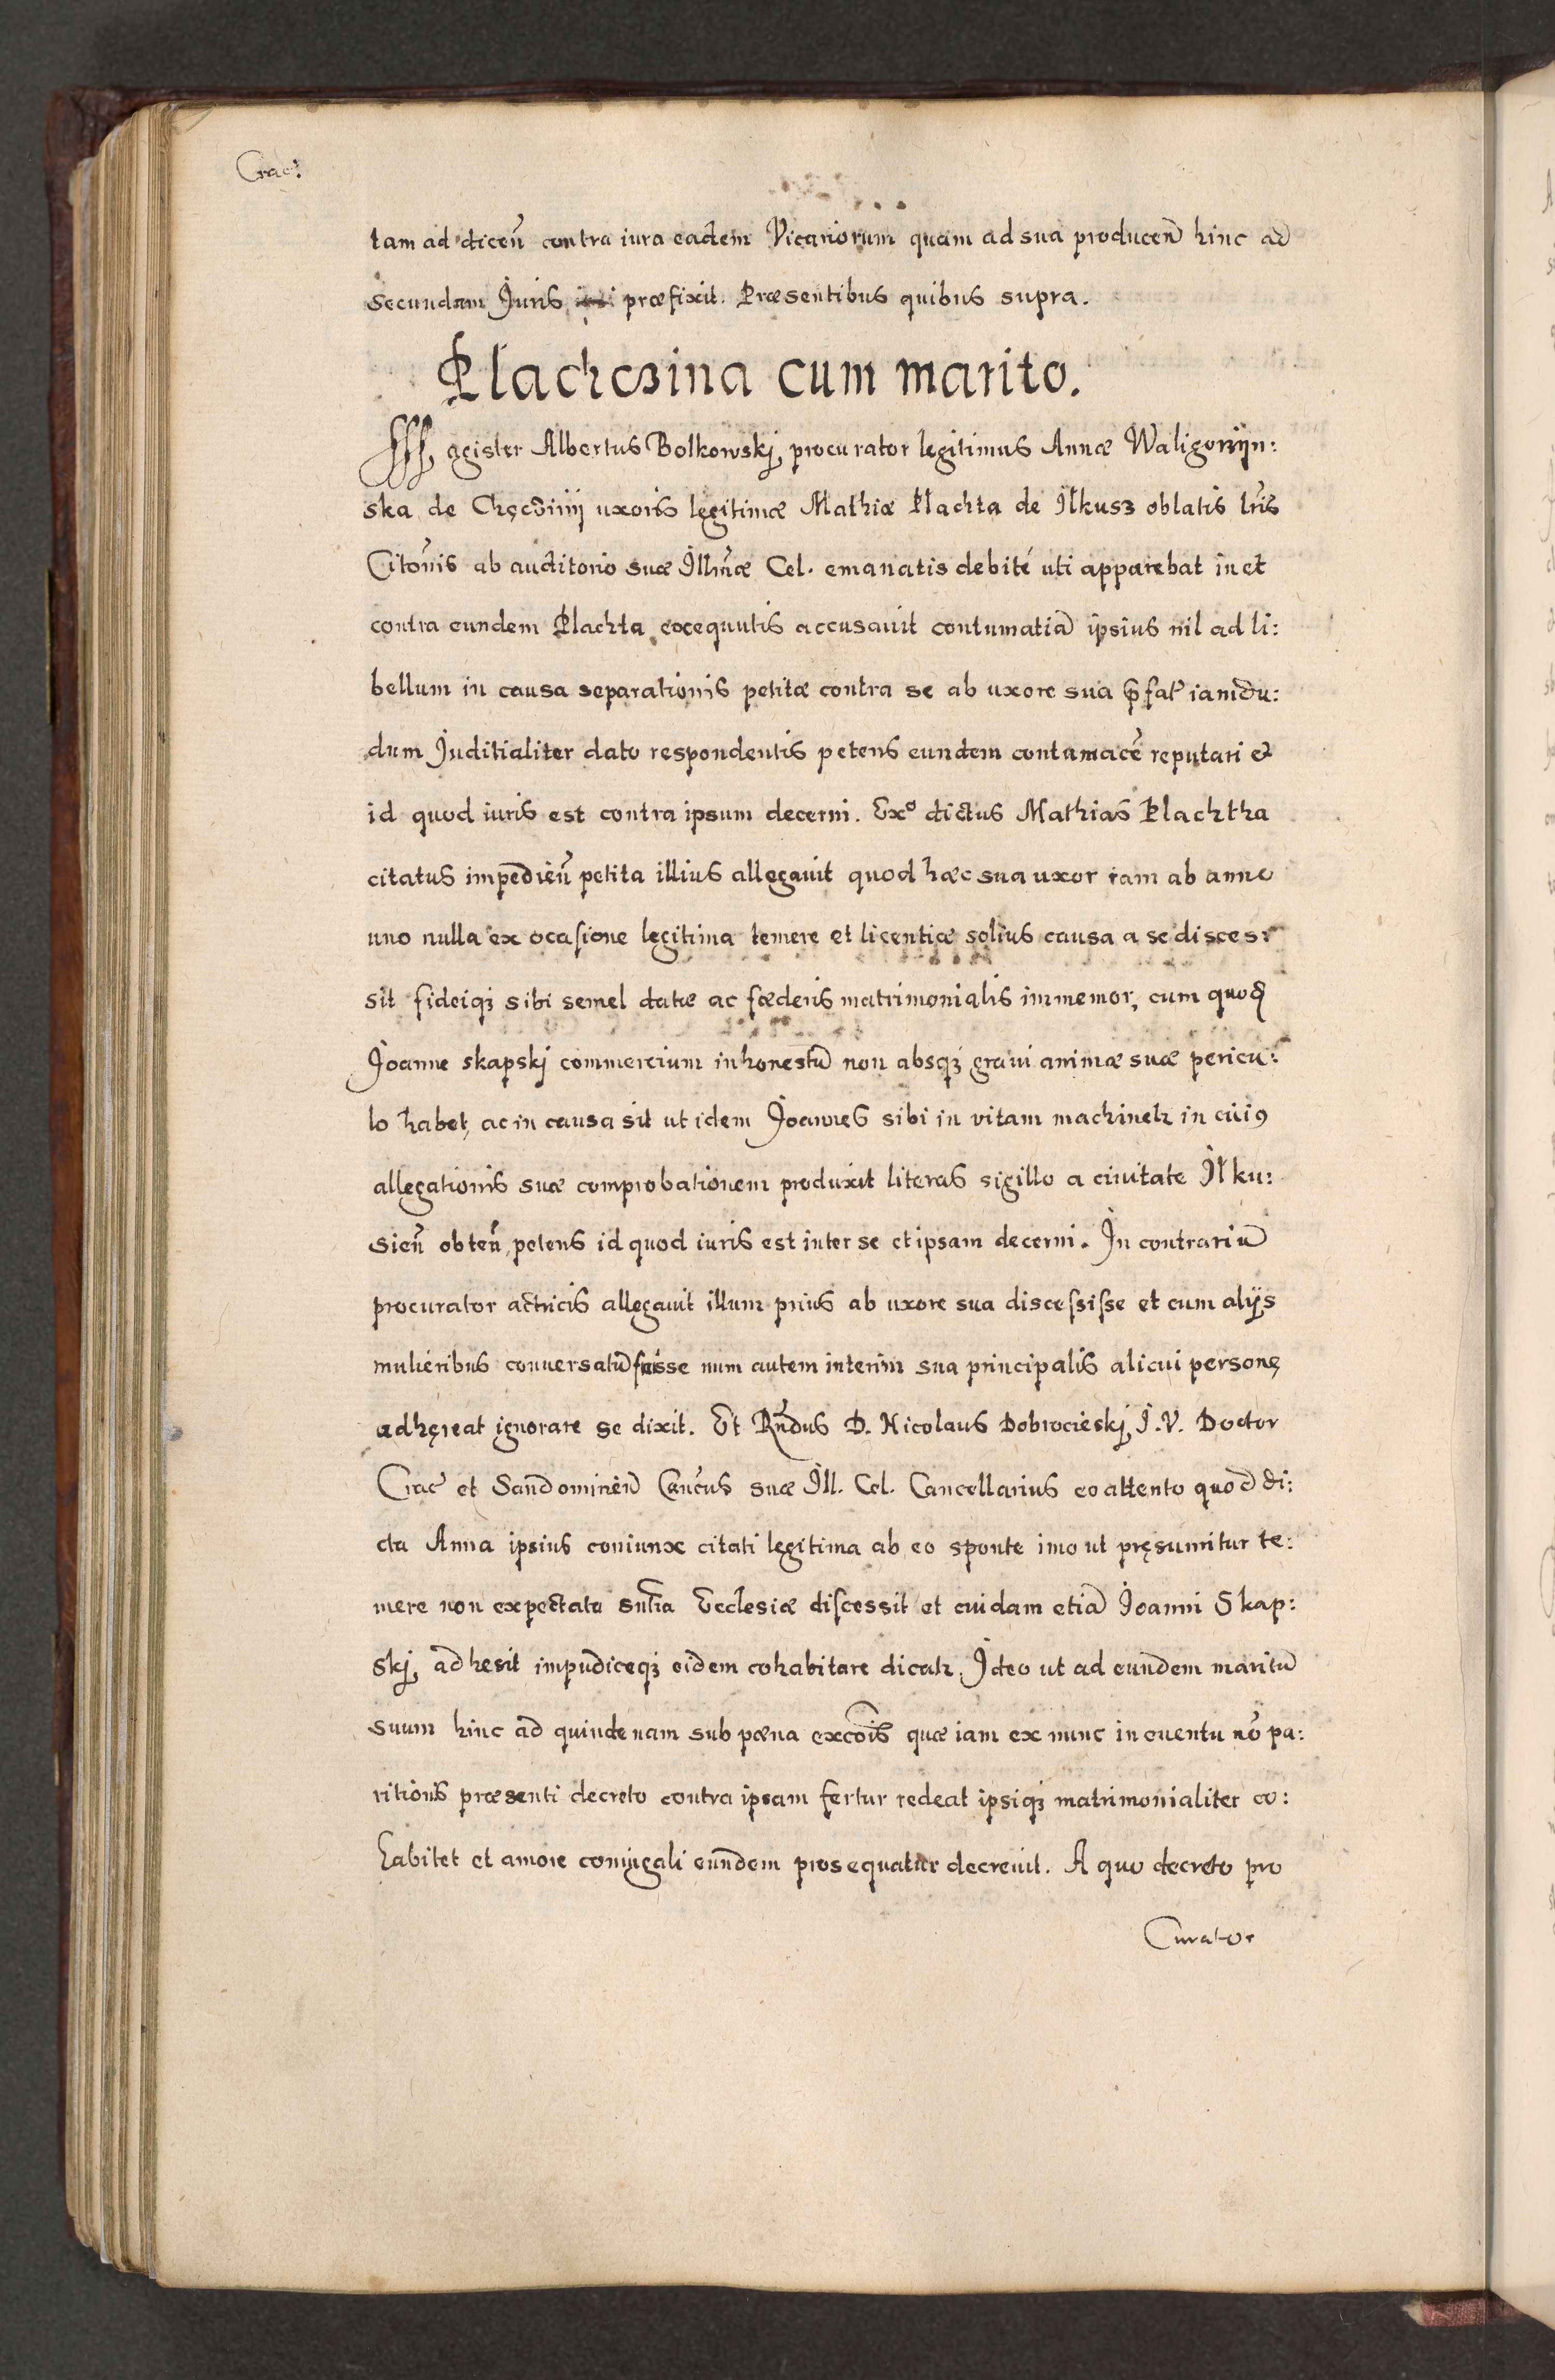 Crac:
tam ad diceñ contra iura eadem Vicariorum quam ad sua produceñ hinc ad
secundam Juris præfixit. Præsentibus quibus supra.
Plachczina cum marito.
Magister Albertus Bolkowskj, procurator legitimus Annæ Waligorÿn:
ska de Chęczinÿ uxoris legitimæ Mathiæ Plachta de Ilkusz oblatis lr̃is
Citõnis ab auditorio suæ Illm̃æ Cel. emanatis debité uti apparebat in et
contra eundem Plachta exequutis accusauit contumatiã ipsius nil ad li:
bellum in causa separationis petitæ contra se ab uxore sua p̃fat̃ iamdu:
dum Juditialiter dato respondentis petens eundem contumacẽ reputari et
id quod iuris est contra ipsum decerni. Exº dictus Mathias Plachtha
citatus impedieñ petita illius allegauit quod hæc sua uxor iam ab anno
uno nulla ex ocasione legitima temere et licentiæ solius causa a se disces:
sit fideiqȝ sibi semel datæ ac fœderis matrimonialis immemor, cum quoď
Joanne skapskj commercium inhonestũ non absqȝ graui animæ suæ pericu:
lo habet, ac in causa sit ut idem Joannes sibi in vitam machinetr in cuiꝰ
allegationis suæ comprobationem produxit literas sigillo a ciuitate Ilku:
sieñ obteñ, petens id quod iuris est inter se et ipsam decerni. In contrariũ
procurator actricis allegauit illum prius ab uxore sua discessisse et cum alijs
mulieribus conuersatũ fuisse num autem interim sua principalis alicui personę
adhęreat ignorare se dixit. Et Rñdus D. Nicolaus Dobrocieskj, I.V. Doctor
Crac̃ et Sandomireñ Cañcus suæ Ill. Cel. Cancellarius eo attento quod di:
cta Anna ipsius coniunx citati legitima ab eo sponte imo ut pręsumitur te:
mere non expectata sñtia Ecclesiæ discessit et cuidam etiã Joanni Skap:
skj, adhesit impudiceqȝ eidem cohabitare dicatr, Ideo ut ad eundem maritũ
suum hinc ad quindenam sub pæna excõis quæ iam ex nunc in euentu nõ pa:
ritionis præsenti decreto contra ipsam fertur redeat ipsiqȝ matrimonialiter co:
habitet et amore coniugali eundem prosequatur decreuit. A quo decreto pro
Curator